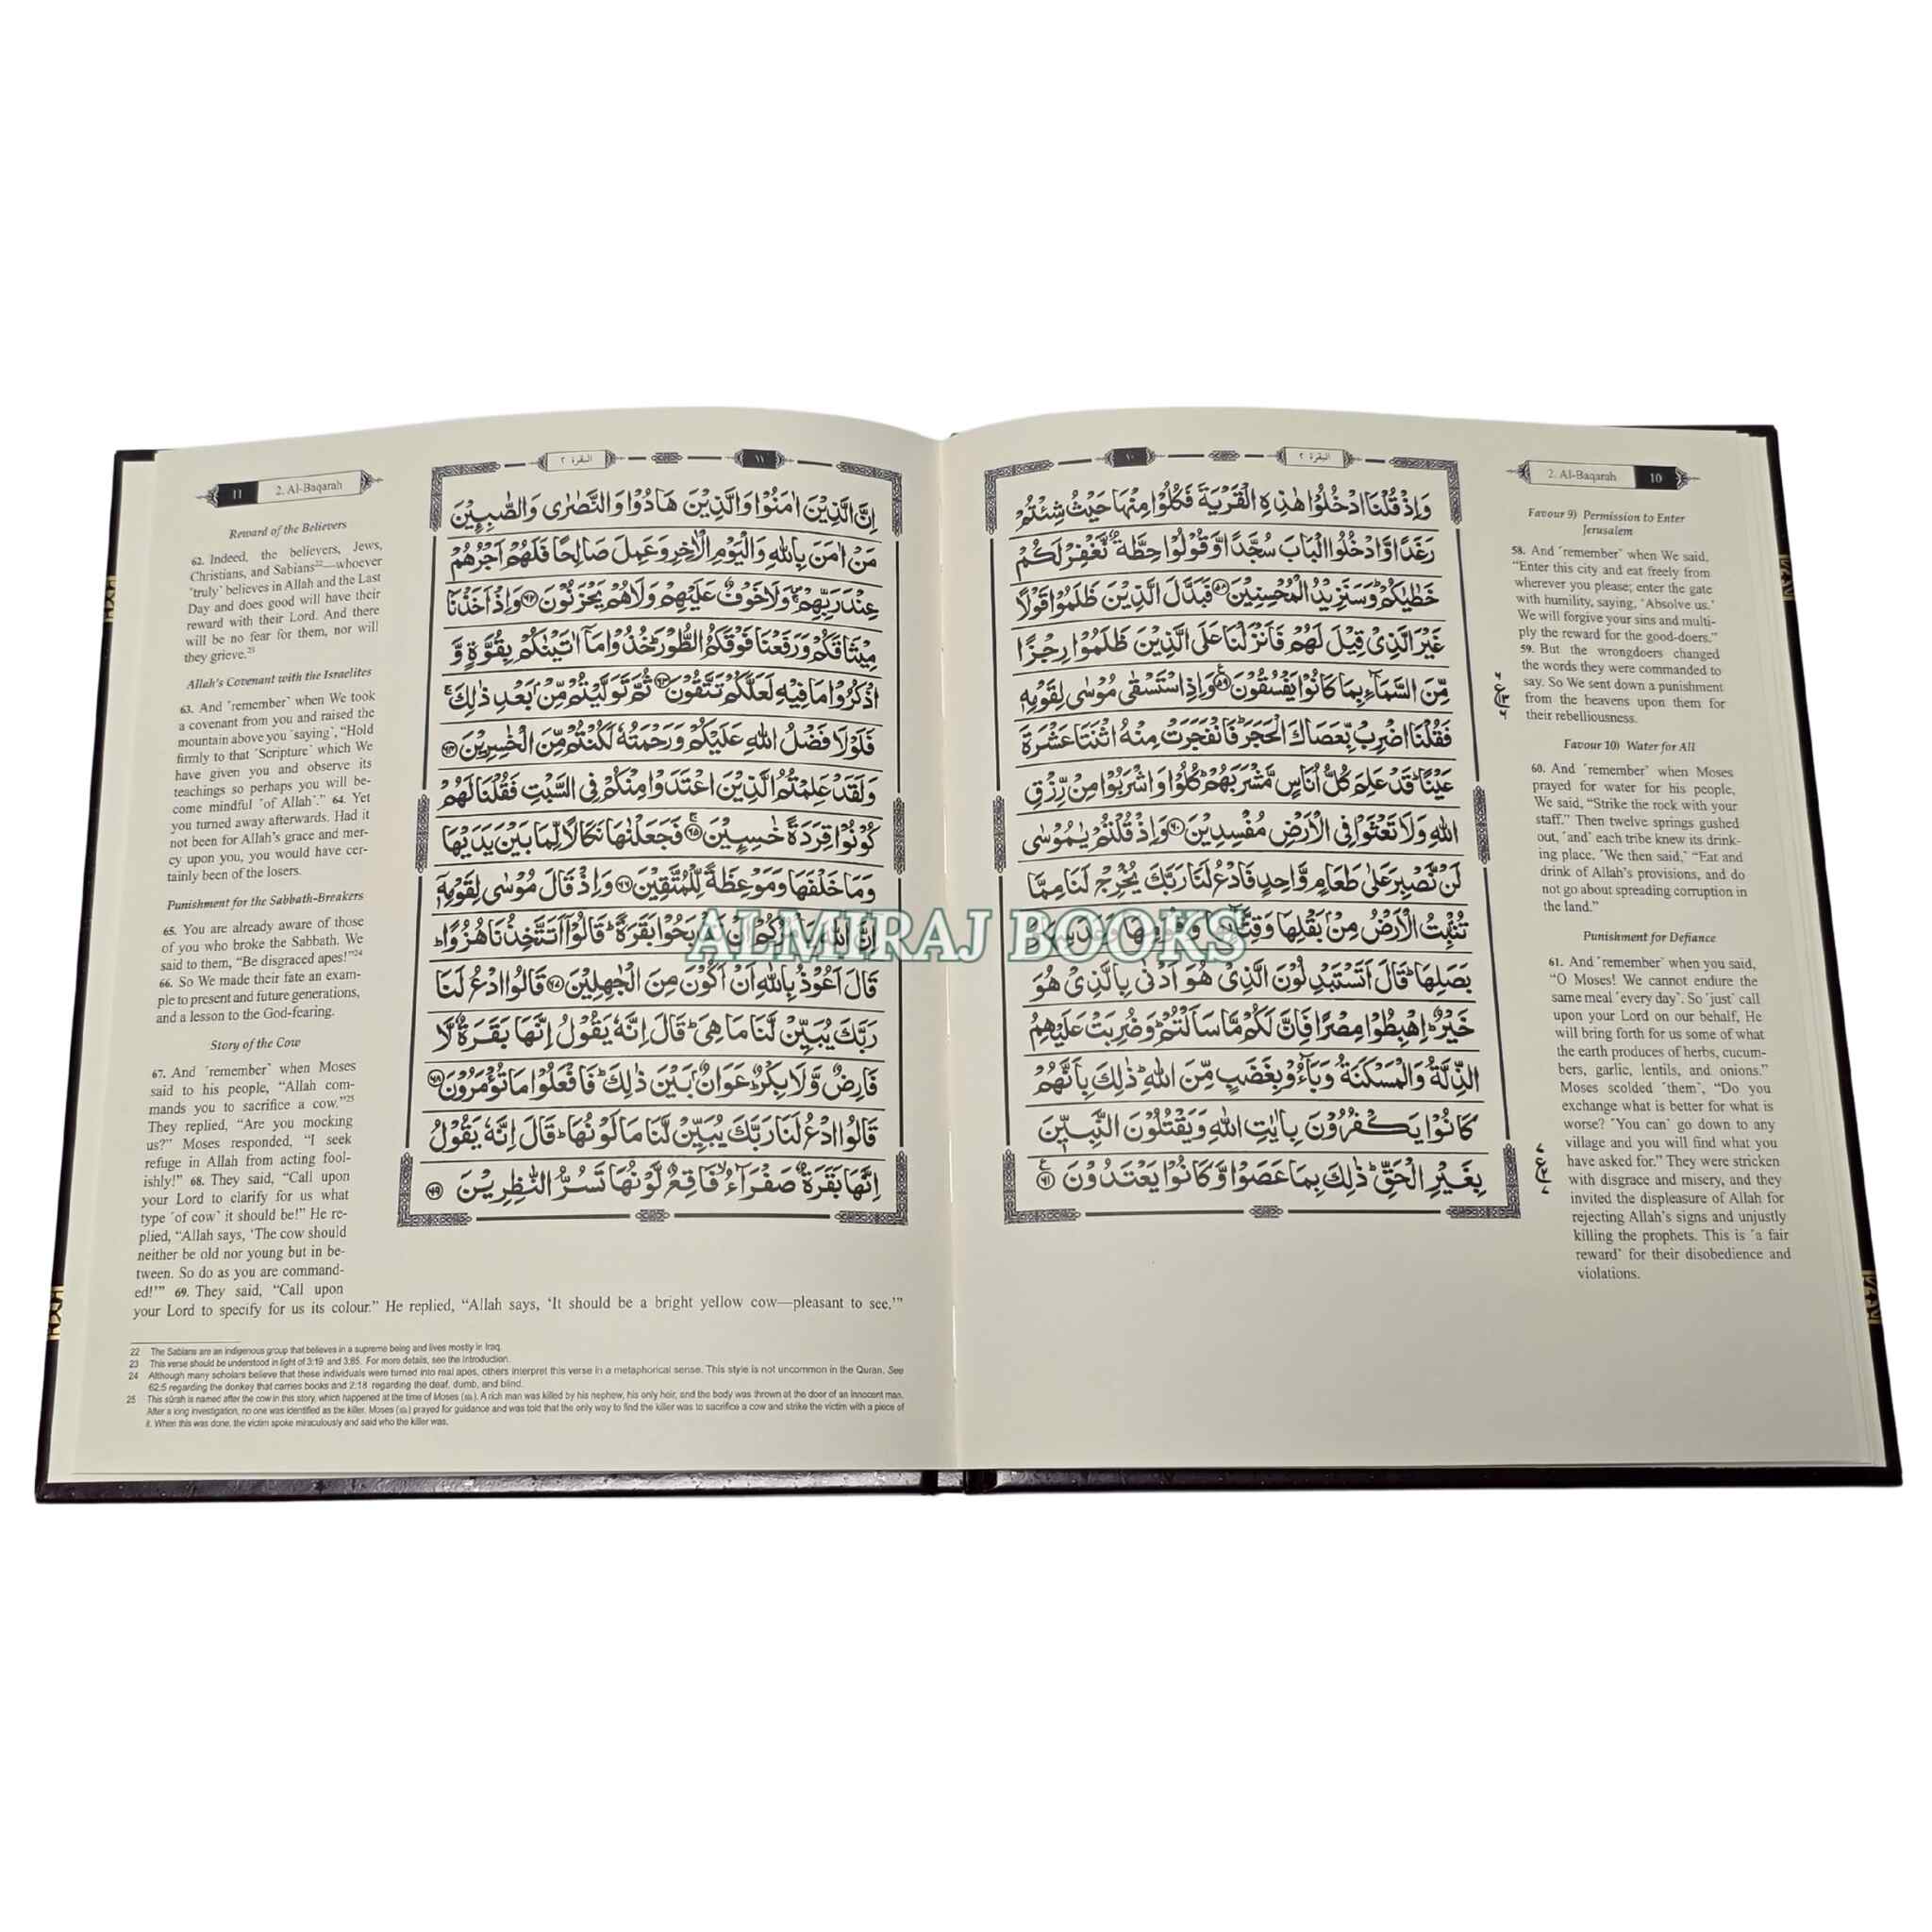 ١٠
البقرة ٢
وَاِذْ قُلْنَا ادْخُلُوْا هٰذِهِ الْقَرْيَةَ فَكُلُوْا مِنْهَا حَيْثُ شِئْتُمْ
رَغَدًا وَّادْخُلُوا الْبَابَ سُجَّدًا وَّقُوْلُوْا حِطَّةٌ نَّغْفِرْ لَكُمْ
خَطٰيٰكُمْ ؕ وَسَنَزِيْدُ الْمُحْسِنِيْنَ ﴿۵۸﴾ فَبَدَّلَ الَّذِيْنَ ظَلَمُوْا قَوْلًا
غَيْرَ الَّذِيْ قِيْلَ لَهُمْ فَاَنْزَلْنَا عَلَى الَّذِيْنَ ظَلَمُوْا رِجْزًا
مِّنَ السَّمَآءِ بِمَا كَانُوْا يَفْسُقُوْنَ ﴿۵۹﴾ وَاِذِ اسْتَسْقٰى مُوْسٰى لِقَوْمِهٖ
فَقُلْنَا اضْرِبْ بِّعَصَاكَ الْحَجَرَ ؕ فَانْفَجَرَتْ مِنْهُ اثْنَتَا عَشْرَةَ
عَيْنًا ؕ قَدْ عَلِمَ كُلُّ اُنَاسٍ مَّشْرَبَهُمْ ؕ كُلُوْا وَاشْرَبُوْا مِنْ رِّزْقِ
اللّٰهِ وَلَا تَعْثَوْا فِى الْاَرْضِ مُفْسِدِيْنَ ﴿۶۰﴾ وَاِذْ قُلْتُمْ يٰمُوْسٰى
لَنْ نَّصْبِرَ عَلٰى طَعَامٍ وَّاحِدٍ فَادْعُ لَنَا رَبَّكَ يُخْرِجْ لَنَا مِمَّا
تُنْۢبِتُ الْاَرْضُ مِنْۢ بَقْلِهَا
بَصَلِهَا ؕ قَالَ اَتَسْتَبْدِلُوْنَ الَّذِيْ هُوَ اَدْنٰى بِالَّذِيْ هُوَ
خَيْرٌ ؕ اِهْبِطُوْا مِصْرًا فَاِنَّ لَكُمْ مَّا سَاَلْتُمْ ؕ وَضُرِبَتْ عَلَيْهِمُ
الذِّلَّةُ وَالْمَسْكَنَةُ ۗ وَبَآءُوْ بِغَضَبٍ مِّنَ اللّٰهِ ؕ ذٰلِكَ بِاَنَّهُمْ
كَانُوْا يَكْفُرُوْنَ بِاٰيٰتِ اللّٰهِ وَيَقْتُلُوْنَ النَّبِيّٖنَ
بِغَيْرِ الْحَقِّ ؕ ذٰلِكَ بِمَا عَصَوْا وَّكَانُوْا يَعْتَدُوْنَ ﴿۶۱﴾
2. Al-Baqarah 10
Favour 9) Permission to Enter
Jerusalem
58. And ˹remember˺ when We said,
“Enter this city and eat freely from
wherever you please; enter the gate
with humility, saying, ‘Absolve us.’
We will forgive your sins and multi-
ply the reward for the good-doers.”
59. But the wrongdoers changed
the words they were commanded to
say. So We sent down a punishment
from the heavens upon them for
their rebelliousness.
Favour 10) Water for All
60. And ˹remember˺ when Moses
prayed for water for his people,
We said, “Strike the rock with your
staff.” Then twelve springs gushed
out, ˹and˺ each tribe knew its drink-
ing place. ˹We then said,˺ “Eat and
drink of Allah’s provisions, and do
not go about spreading corruption in
the land.”
Punishment for Defiance
61. And ˹remember˺ when you said,
“O Moses! We cannot endure the
same meal ˹every day˺. So ˹just˺ call
upon your Lord on our behalf, He
will bring forth for us some of what
the earth produces of herbs, cucum-
bers, garlic, lentils, and onions.”
Moses scolded ˹them˺, “Do you
exchange what is better for what is
worse? ˹You can˺ go down to any
village and you will find what you
have asked for.” They were stricken
with disgrace and misery, and they
invited the displeasure of Allah for
rejecting Allah’s signs and unjustly
killing the prophets. This is ˹a fair
reward˺ for their disobedience and
violations.
١١
البقرة ٢
اِنَّ الَّذِيْنَ اٰمَنُوْا وَالَّذِيْنَ هَادُوْا وَالنَّصٰرٰى وَالصّٰبِـِٕيْنَ
مَنْ اٰمَنَ بِاللّٰهِ وَالْيَوْمِ الْاٰخِرِ وَعَمِلَ صَالِحًا فَلَهُمْ اَجْرُهُمْ
عِنْدَ رَبِّهِمْ ۚ وَلَا خَوْفٌ عَلَيْهِمْ وَلَا هُمْ يَحْزَنُوْنَ ﴿۶۲﴾ وَاِذْ اَخَذْنَا
مِيْثَاقَكُمْ وَرَفَعْنَا فَوْقَكُمُ الطُّوْرَ ؕ خُذُوْا مَآ اٰتَيْنٰكُمْ بِقُوَّةٍ وَّ
اذْكُرُوْا مَا فِيْهِ لَعَلَّكُمْ تَتَّقُوْنَ ﴿۶۳﴾ ثُمَّ تَوَلَّيْتُمْ مِّنْۢ بَعْدِ ذٰلِكَ ۚ
فَلَوْلَا فَضْلُ اللّٰهِ عَلَيْكُمْ وَرَحْمَتُهٗ لَكُنْتُمْ مِّنَ الْخٰسِرِيْنَ ﴿۶۴﴾
وَلَقَدْ عَلِمْتُمُ الَّذِيْنَ اعْتَدَوْا مِنْكُمْ فِى السَّبْتِ فَقُلْنَا لَهُمْ
كُوْنُوْا قِرَدَةً خٰسِـِٕيْنَ ﴿۶۵﴾ فَجَعَلْنٰهَا نَكَالًا لِّمَا بَيْنَ يَدَيْهَا
وَمَا خَلْفَهَا وَمَوْعِظَةً لِّلْمُتَّقِيْنَ ﴿۶۶﴾ وَاِذْ قَالَ مُوْسٰى لِقَوْمِهٖٓ
اِنَّ اللّٰهَ يَاْمُرُكُمْ اَنْ تَذْبَحُوْا بَقَرَةً ؕ قَالُوْٓا اَتَتَّخِذُنَا هُزُوًا ؕ
قَالَ اَعُوْذُ بِاللّٰهِ اَنْ اَكُوْنَ مِنَ الْجٰهِلِيْنَ ﴿۶۷﴾ قَالُوا ادْعُ لَنَا
رَبَّكَ يُبَيِّنْ لَّنَا مَا هِيَ ؕ قَالَ اِنَّهٗ يَقُوْلُ اِنَّهَا بَقَرَةٌ لَّا
فَارِضٌ وَّلَا بِكْرٌ ؕ عَوَانٌۢ بَيْنَ ذٰلِكَ ؕ فَافْعَلُوْا مَا تُؤْمَرُوْنَ ﴿۶۸﴾
قَالُوا ادْعُ لَنَا رَبَّكَ يُبَيِّنْ لَّنَا مَا لَوْنُهَا ؕ قَالَ اِنَّهٗ يَقُوْلُ
اِنَّهَا بَقَرَةٌ صَفْرَآءُ ۙ فَاقِعٌ لَّوْنُهَا تَسُرُّ النّٰظِرِيْنَ ﴿۶۹﴾
11 2. Al-Baqarah
Reward of the Believers
62. Indeed, the believers, Jews,
Christians, and Sabians22—whoever
˹truly˺ believes in Allah and the Last
Day and does good will have their
reward with their Lord. And there
will be no fear for them, nor will
they grieve.23
Allah’s Covenant with the Israelites
63. And ˹remember˺ when We took
a covenant from you and raised the
mountain above you ˹saying˺, “Hold
firmly to that ˹Scripture˺ which We
have given you and observe its
teachings so perhaps you will be-
come mindful ˹of Allah˺.” 64. Yet
you turned away afterwards. Had it
not been for Allah’s grace and mer-
cy upon you, you would have cer-
tainly been of the losers.
Punishment for the Sabbath-Breakers
65. You are already aware of those
of you who broke the Sabbath. We
said to them, “Be disgraced apes!”24
66. So We made their fate an exam-
ple to present and future generations,
and a lesson to the God-fearing.
Story of the Cow
67. And ˹remember˺ when Moses
said to his people, “Allah com-
mands you to sacrifice a cow.”25
They replied, “Are you mocking
us?” Moses responded, “I seek
refuge in Allah from acting fool-
ishly!” 68. They said, “Call upon
your Lord to clarify for us what
type ˹of cow˺ it should be!” He re-
plied, “Allah says, ‘The cow should
neither be old nor young but in be-
tween. So do as you are command-
ed!’” 69. They said, “Call upon
your Lord to specify for us its colour.” He replied, “Allah says, ‘It should be a bright yellow cow—pleasant to see.’”
22 The Sabians are an indigenous group that believes in a supreme being and lives mostly in Iraq.
23 This verse should be understood in light of 3:19 and 3:85. For more details, see the Introduction.
24 Although many scholars believe that these individuals were turned into real apes, others interpret this verse in a metaphorical sense. This style is not uncommon in the Quran. See
62:5 regarding the donkey that carries books and 2:18 regarding the deaf, dumb, and blind.
25 This sûrah is named after the cow in this story, which happened at the time of Moses (ﷺ). A rich man was killed by his nephew, his only heir, and the body was thrown at the door of an innocent man.
After a long investigation, no one was identified as the killer. Moses (ﷺ) prayed for guidance and was told that the only way to find the killer was to sacrifice a cow and strike the victim with a piece of
it. When this was done, the victim spoke miraculously and said who the killer was.
ALMIRAJ BOOKS